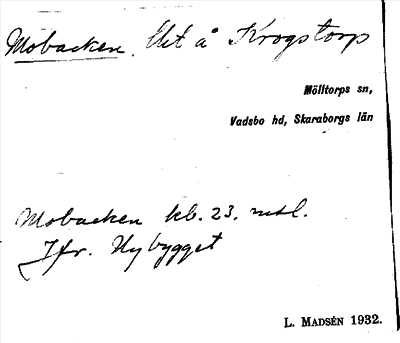 Mobacken. Utt å Krogstorp
Mölltorps sn,
Vadsbo hd, Skaraborgs län
Mobacken kb. 23. mtl.
Jfr. Nybygget
L. MADSÉN 1932.